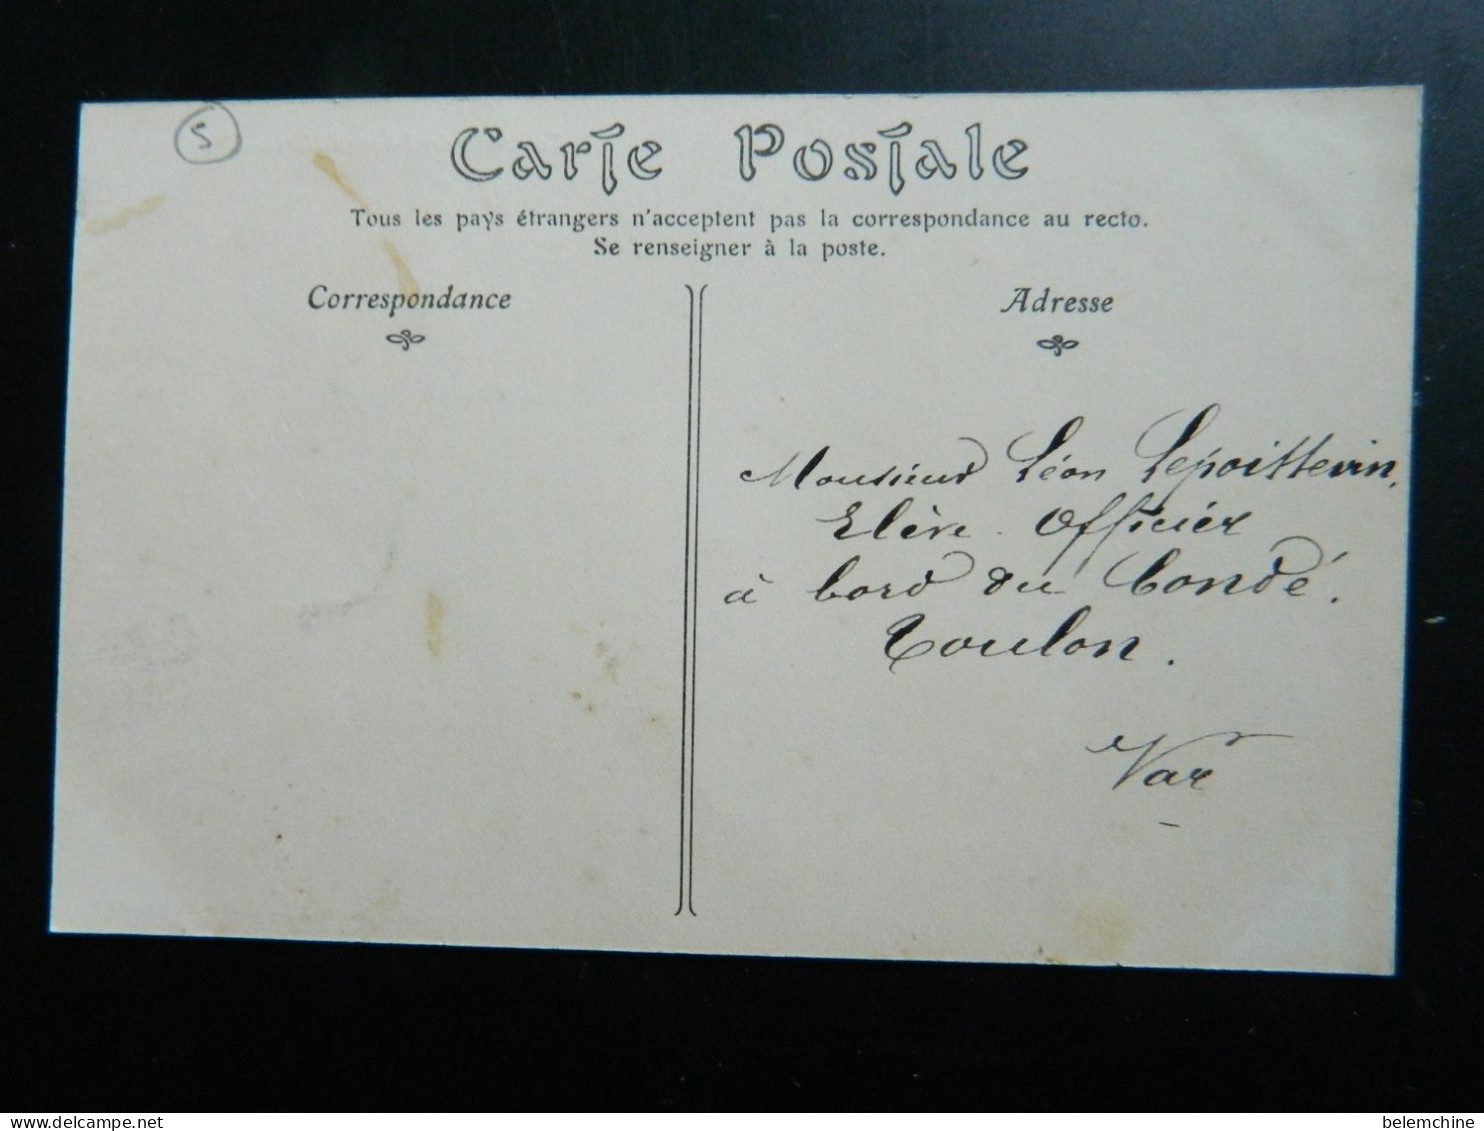 5
Carte Postale
Tous les pays étrangers n'acceptent pas la correspondance au recto.
Se renseigner à la poste.
Correspondance
Adresse
Monsieur Léon Lepoittevin,
Elève - Officier
à bord du Condé.
Toulon.
Var
delcampe.net
belemchine